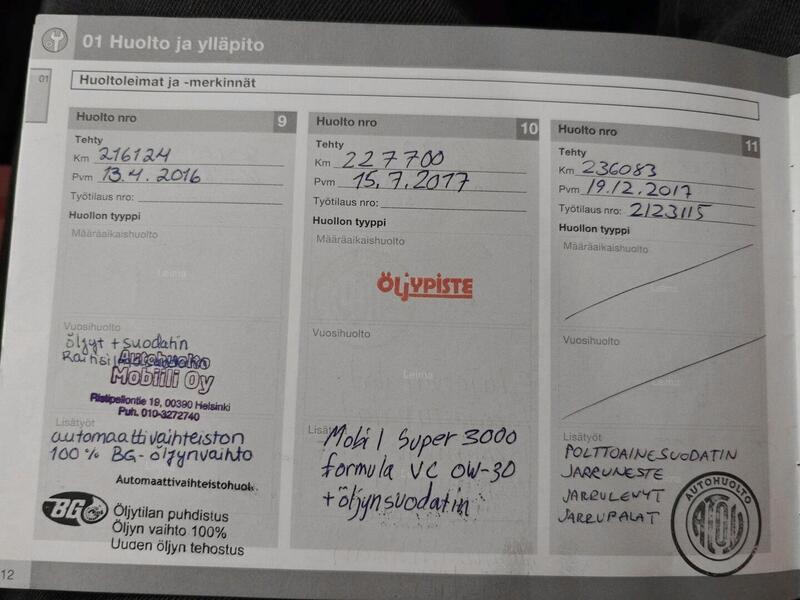 01 Huolto ja ylläpito
01
Huoltoleimat ja -merkinnät
Huolto nro 9
Tehty
Km 216124
Pvm 13.4.2016
Työtilaus nro:
Huollon tyyppi
Määräaikaishuolto
Leima
Vuosihuolto
öljyt + suodatin
Autohuolto
Mobiili Oy
Ristipellontie 19, 00390 Helsinki
Puh. 010-3272740
Lisätyöt
automaattivaihteiston
100 % BG-öljynvaihto
Automaattivaihteistohuol
BG
Öljytilan puhdistus
Öljyn vaihto 100%
Uuden öljyn tehostus
Huolto nro 10
Tehty
Km 227700
Pvm 15.7.2017
Työtilaus nro:
Huollon tyyppi
Määräaikaishuolto
ÖljYPISTE
Vuosihuolto
Leima
Mobil Super 3000
formula VC 0W-30
+ öljynsuodatin
Huolto nro 11
Tehty
Km 236083
Pvm 19.12.2017
Työtilaus nro: 2123115
Huollon tyyppi
Määräaikaishuolto
Leima
Vuosihuolto
Leima
Lisätyöt
POLTTOAINESUODATIN
JARRUNESTE
JARRULEVYT
JARRUPALAT
AUTOHUOLTO
12